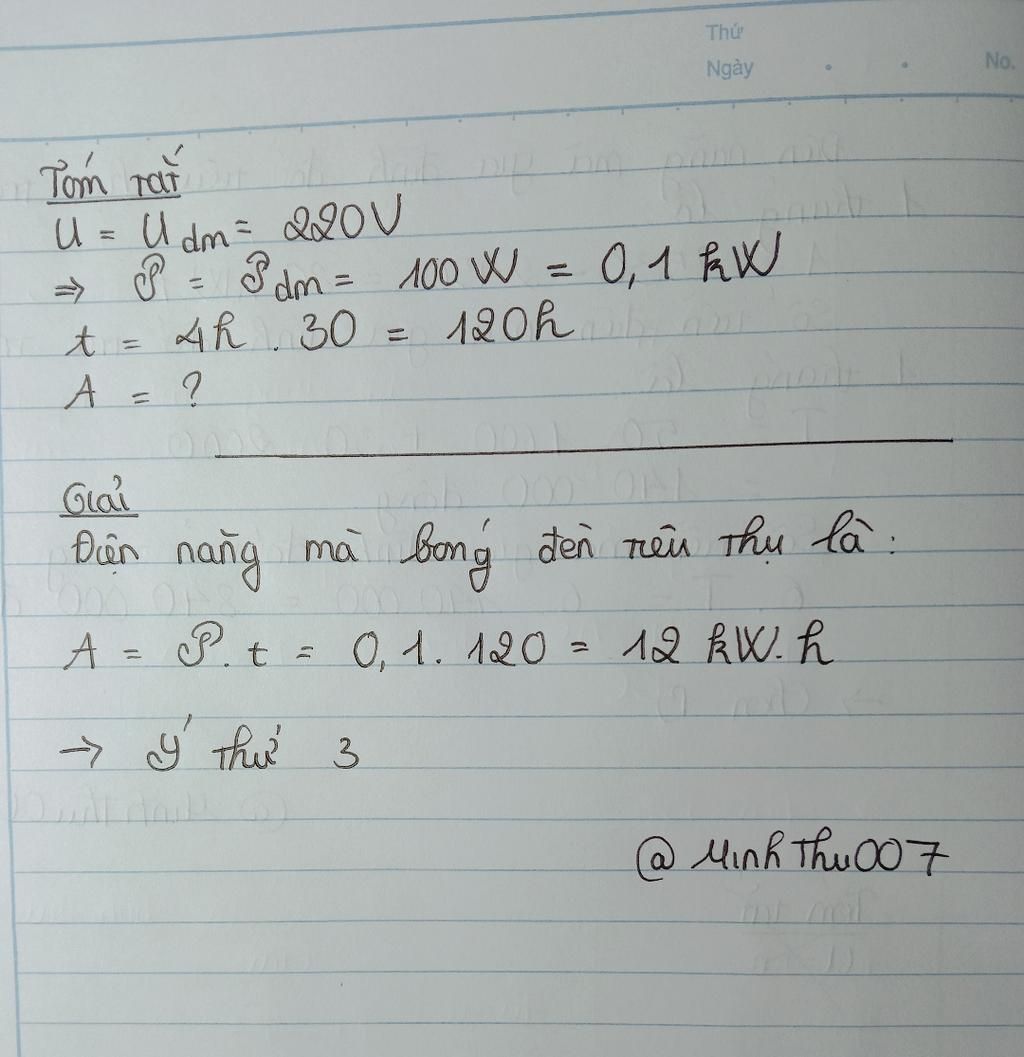 Thứ
Ngày . . No.
Tóm tắt
U = Udm = 220V
⇒ P = Pdm = 100W = 0,1 kW
t = 4h . 30 = 120h
A = ?
Giải
Điện năng mà bóng đèn tiêu thụ là :
A = P. t = 0,1. 120 = 12 kW. h
→ Ý thứ 3
@ MinhThu007